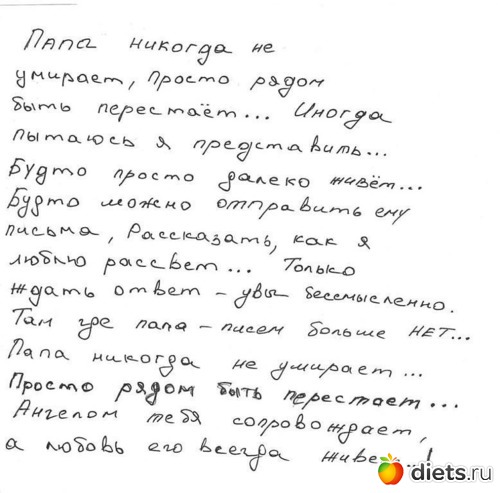 Папа никогда не
умирает, просто рядом
быть перестаёт... Иногда
пытаюсь я представить...
Будто просто далеко живёт...
Будто можно отправить ему
письма, Рассказать, как я
люблю рассвет... Только
ждать ответ - увы бессмысленно.
Там где папа - писем больше НЕТ...
Папа никогда не умирает...
Просто рядом быть перестает...
Ангелом тебя сопровождает,
а любовь его всегда живе...!
diets.ru